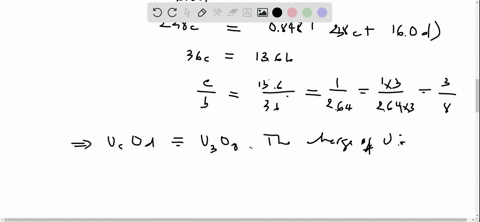 238c = 0.848 ( 238c + 16.0d)
36c = 13.6b
c/b = 13.6/36 = 1/2.64 = 1x3/2.64x3 = 3/8
⇒ UcOd = U3O8. The charge of U is